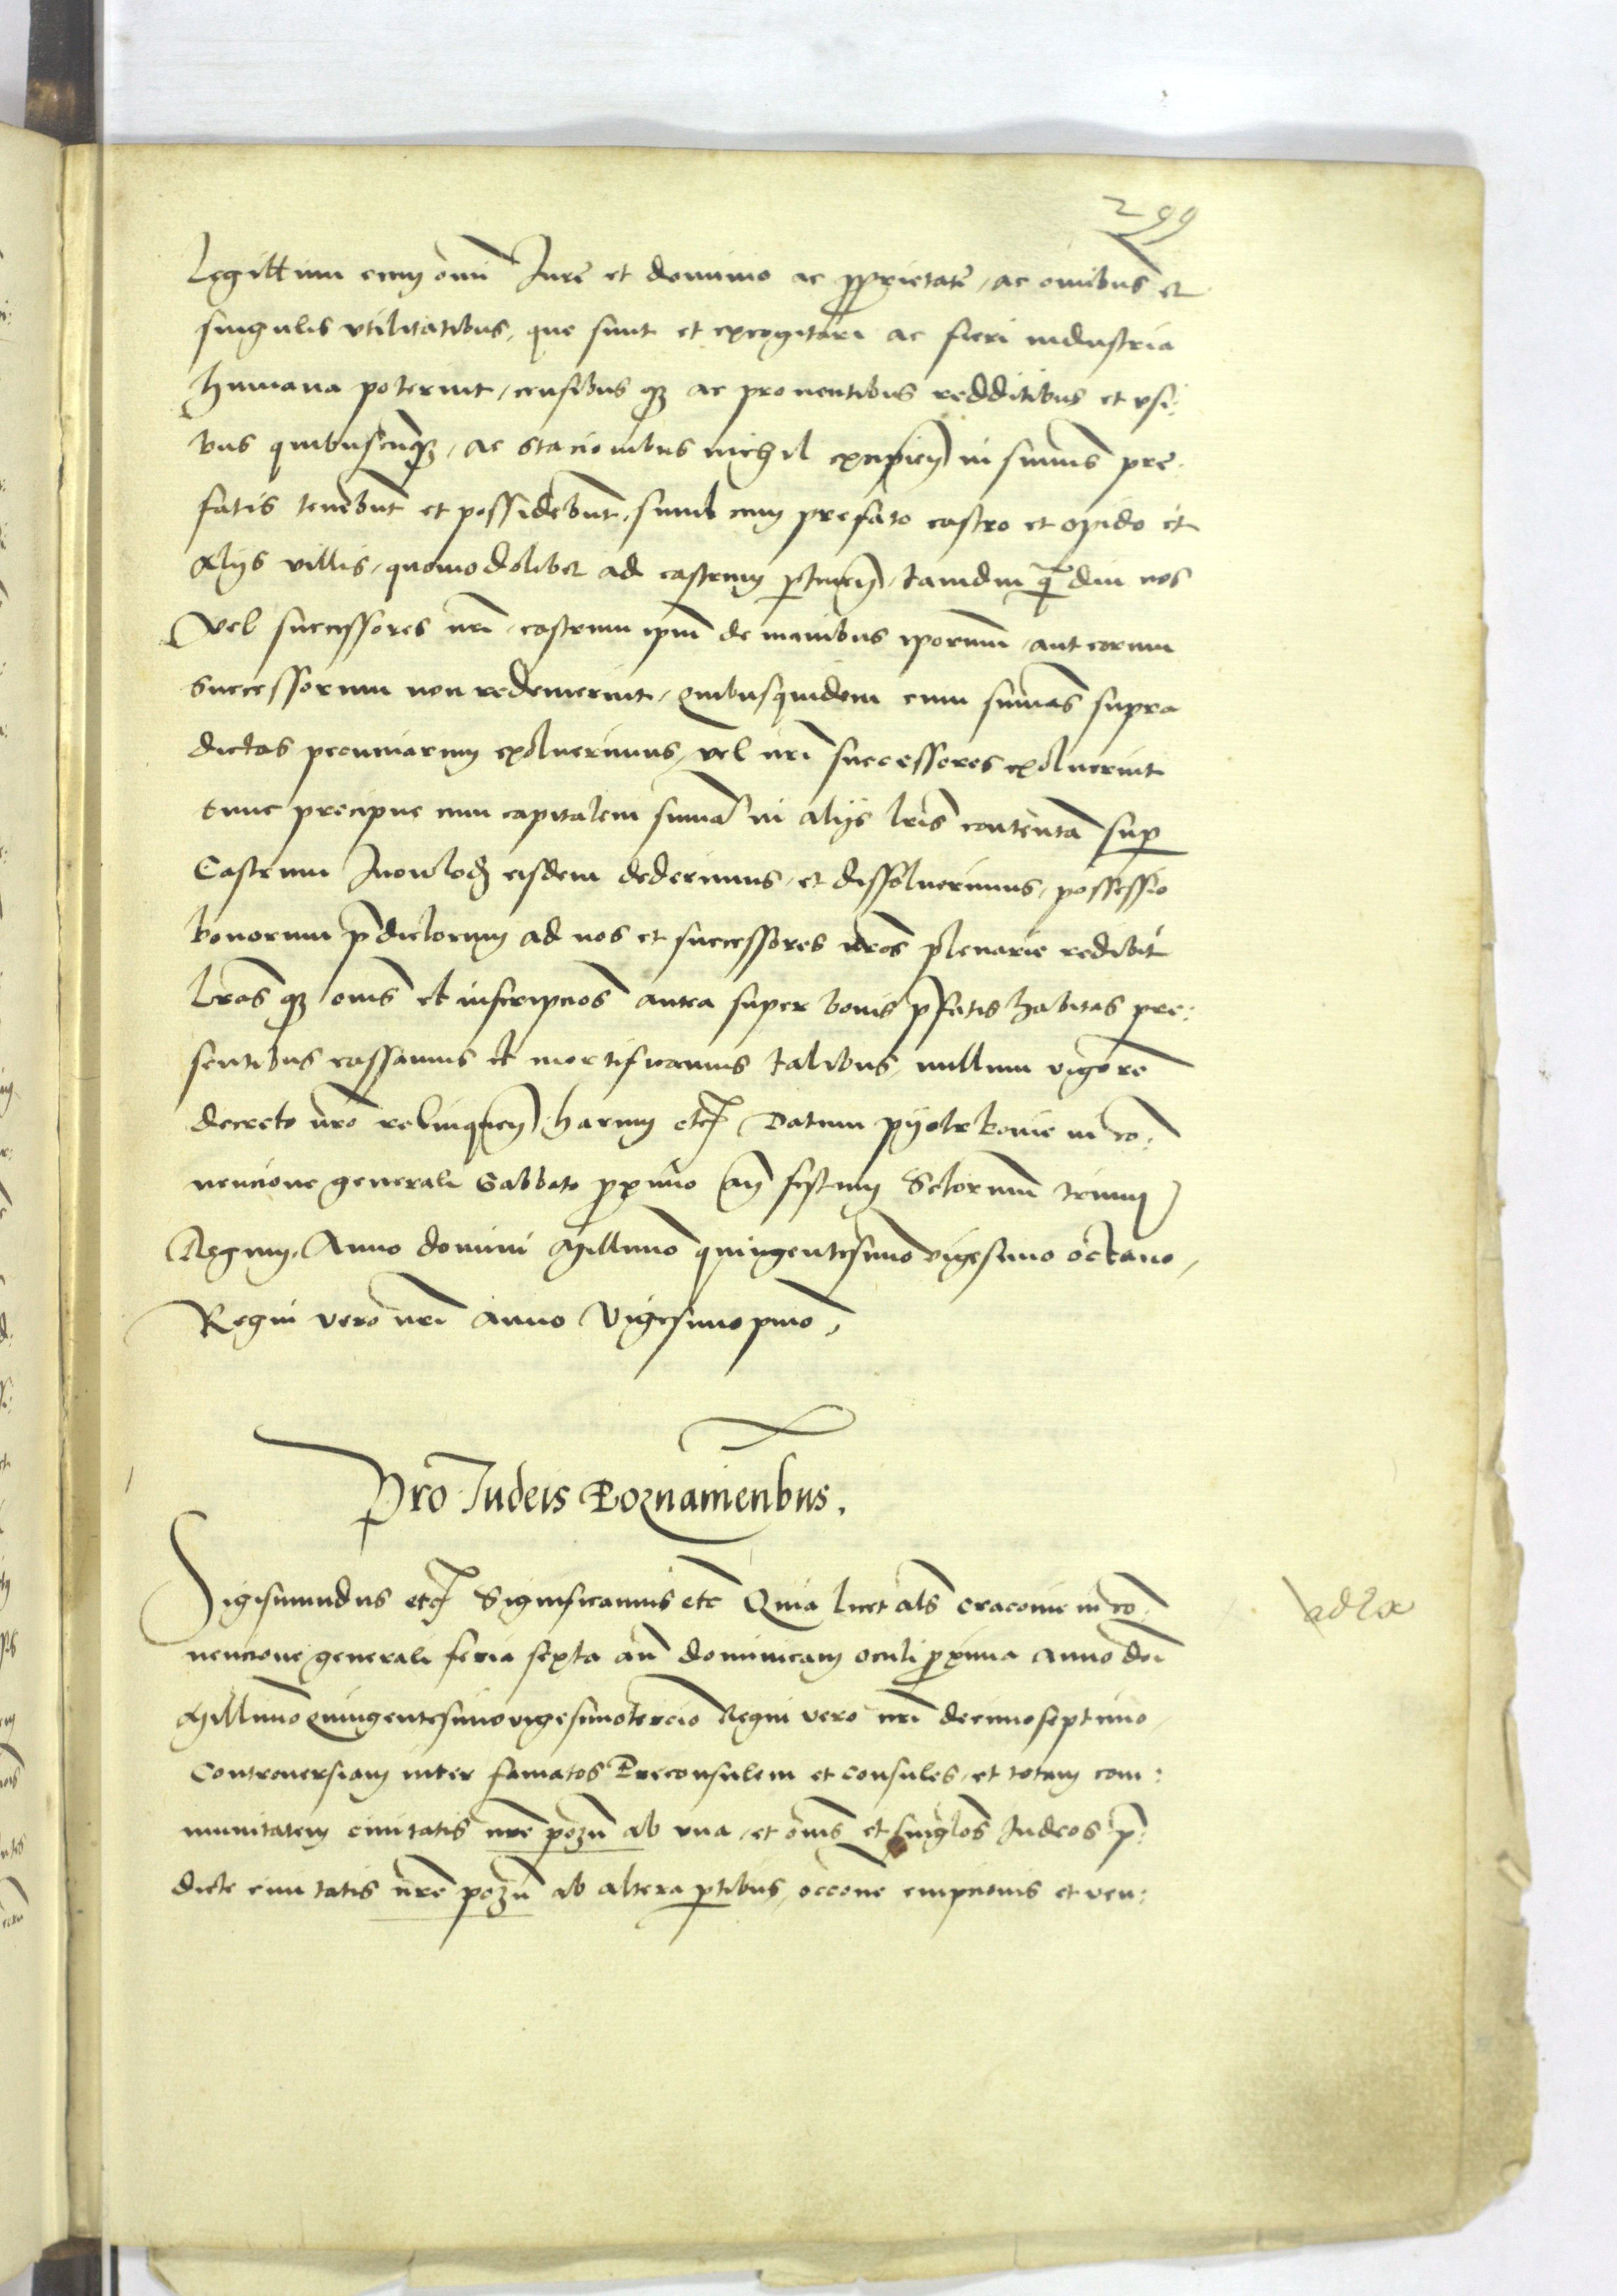 299
legittimi cum omni Jure et dominio ac proprietate, ac omnibus et
singulis vtilitatibus, que sunt et excogitari ac fieri industria
humana poterunt, censibus q3 ac prouentibus redditibus et vsi:
bus quibuscunq3, ac stacionibus nichil excipien in summis pre:
fatis tenebunt et possidebunt, simul cum prefato castro et opido et
alijs villis, quomodolibet ad castrum ptinen, tamdiu q̄ diu nos
vel successores nri castrum ipm̄ de manibus ipsorum, aut eorum
successorum non redemerint, quibusquidem cum summas supra
dictas pecuniarum exoluerimus, vel nri successores exoluerint
tunc precipue cum capitalem summā in alijs lris contentā sup
Castrum Inowlodz eisdem dederimus, et dissoluerimus, possessio
bonorum p̄dictorum ad nos et successores nros plenarie redibit
lras q3 oms et inscripcōs antea super bonis p̄fatis habitas pre:
sentibus cassamus et mortificamus talibus, nullum vigorē
decreto nro relinquen, harum etc Datum pijotrkouie in co:
nencione generali Sabbato proximo an̄ festum Sctorum trium
Regum, Anno domini Millimo quingentesimo vigesimo octauo,
Regni vero nri anno Vigesimoprimo,
Pro Iudeis Poznaniensibus.
Sigismundus etc Significamus etc Quia licet als cracouie in co:
nencione generali feria sexta an̄ dominicam oculi proxima anno dni
Millimo Quingentesimo vigesimotercio Regni vero nri decimoseptimo,
Controuersiam inter famatos Preconsulem et consules, et totam com:
munitatem ciuitatis nre pozn̄ ab vna, et oms et singlos Iudeos p̄:
dicte ciuitatis nre pozn̄ ab altera ptibus, occōne empcionis et ven: